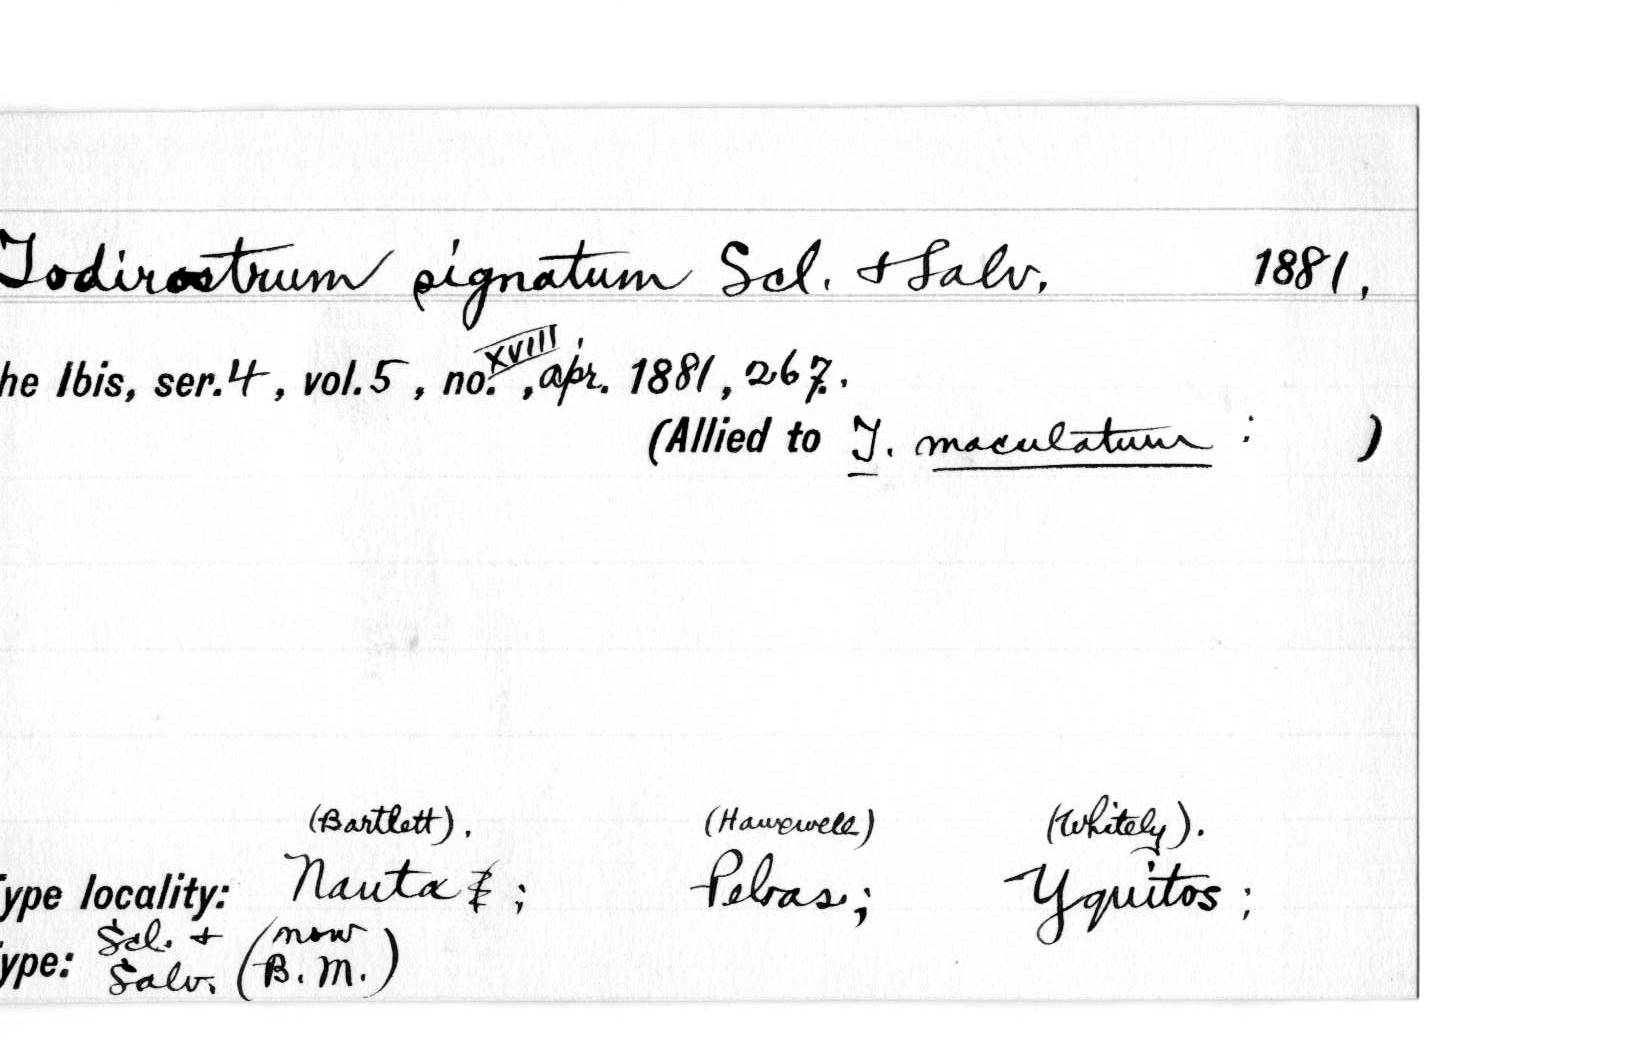 Todirostrum signatum Scl. & Salv. 1881,
he Ibis, ser.4, vol.5, no. XVIII, apr. 1881, 267.
(Allied to T. maculatum : )
(Bartlett). (Hauxwell) (Whitely).
ype locality: Nauta ; Pebas; Yquitos ;
Scl. & (now
ype: Salv. B.M.)